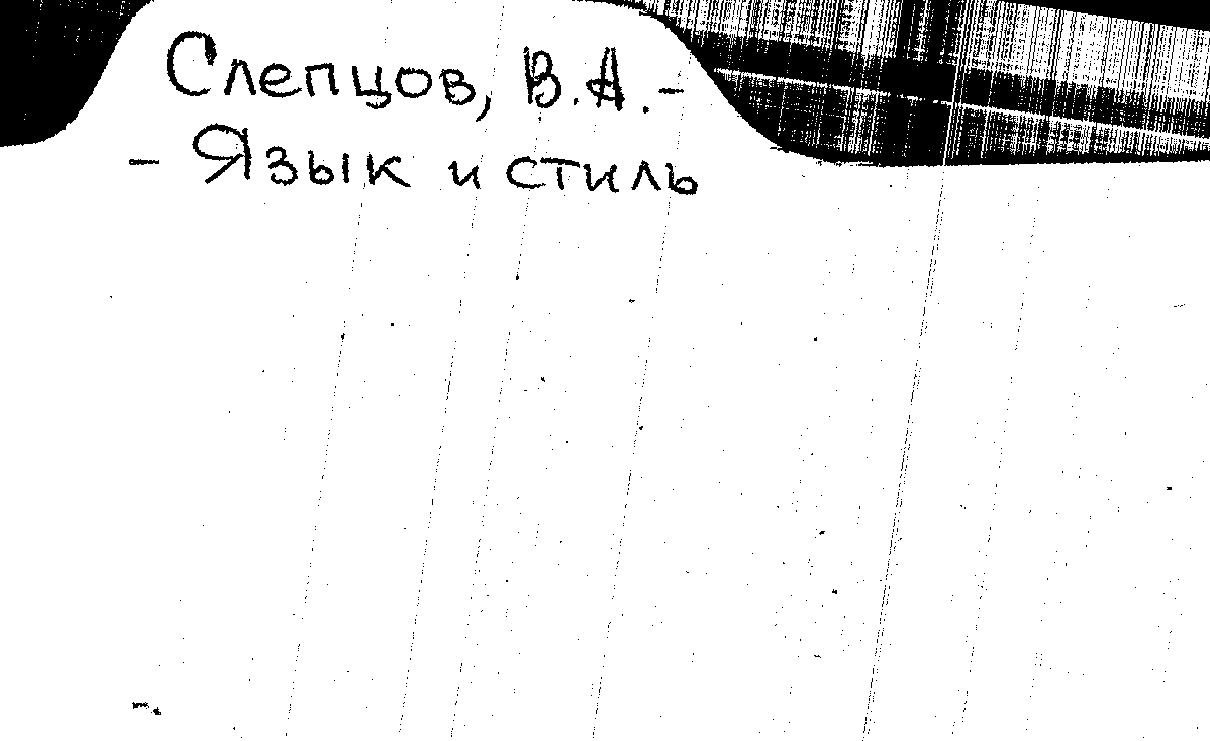 Слепцов, В.А.-
- Язык и стиль